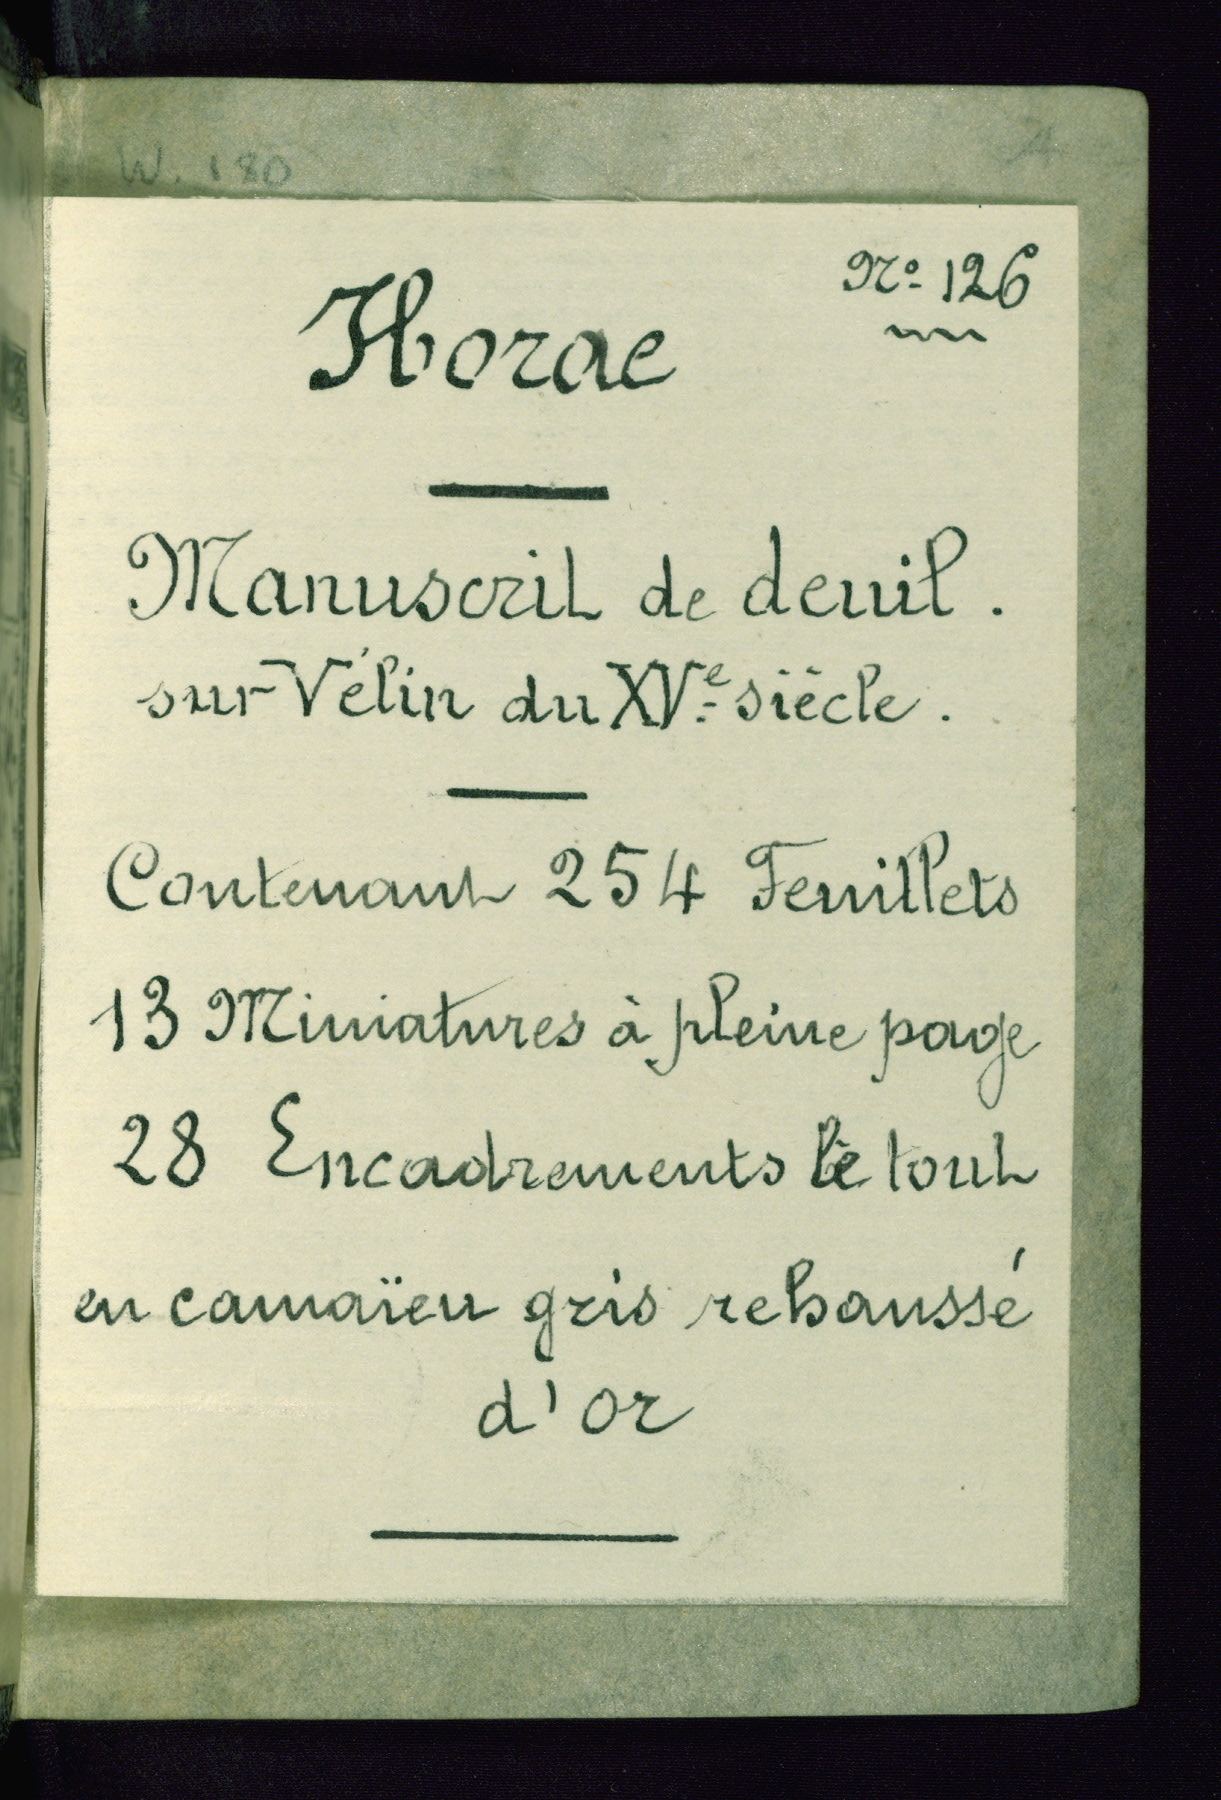 W. 180
Nº 126
Horae
Manuscrit de deuil.
sur Vélin du XVe siècle.
Contenant 254 Feuillets
13 Miniatures à pleine page
28 Encadrements le tout
en camaïeu gris rehaussé
d'or